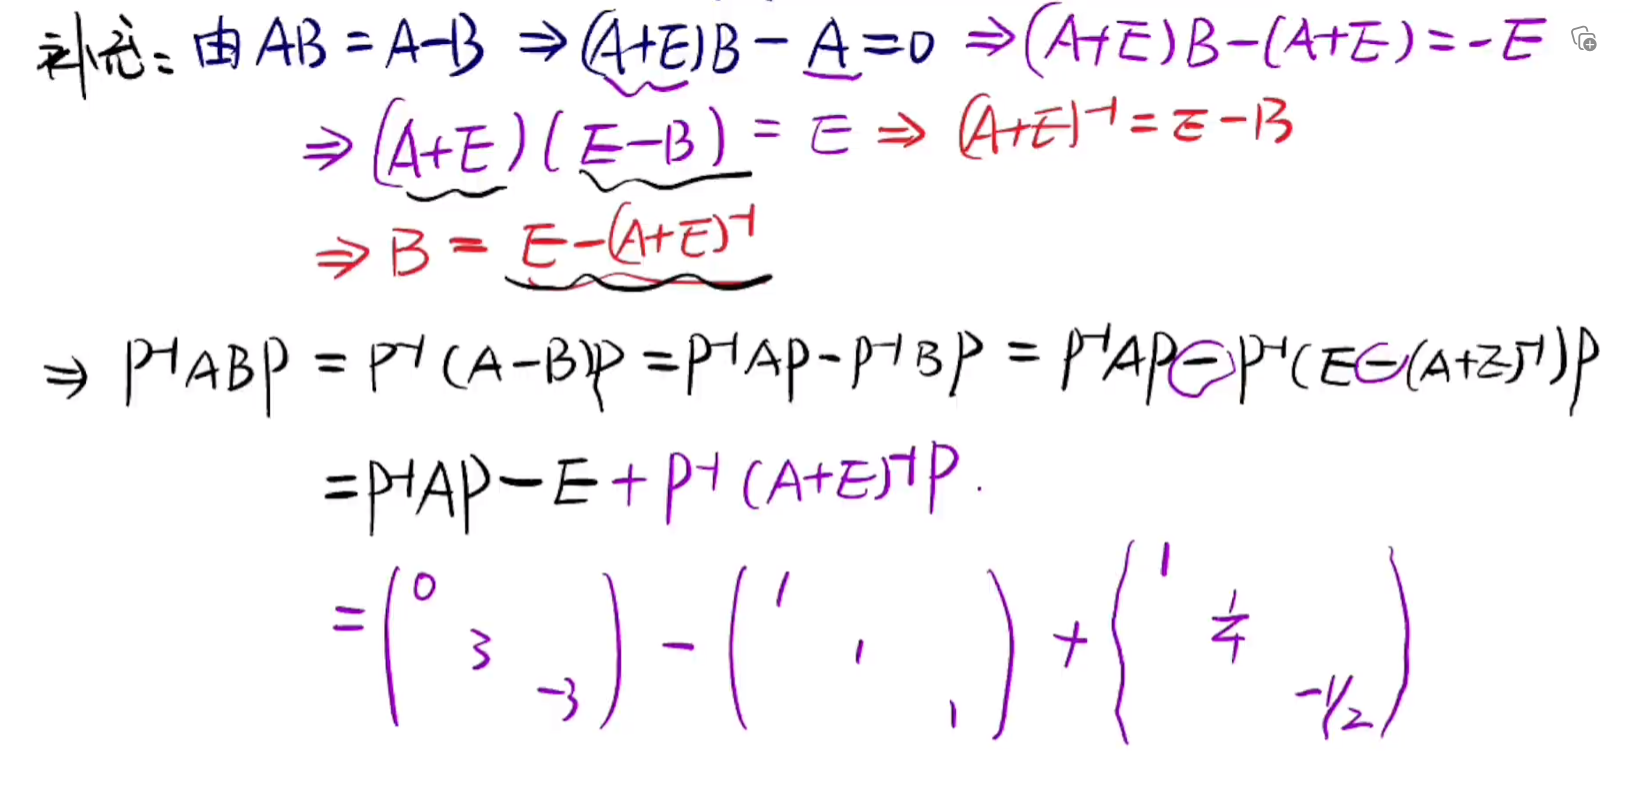 补充: 由 AB = A-B ⇒ (A+E)B - A = 0 ⇒ (A+E)B-(A+E) = -E
⇒ (A+E)(E-B) = E ⇒ (A+E)⁻¹ = E-B
⇒ B = E-(A+E)⁻¹
⇒ P⁻¹ABP = P⁻¹(A-B)P = P⁻¹AP - P⁻¹BP = P⁻¹AP - P⁻¹(E-(A+E)⁻¹)P
= P⁻¹AP - E + P⁻¹(A+E)⁻¹P.
= (0 3 -3) - (1 1 1) + (1 1/4 -1/2)